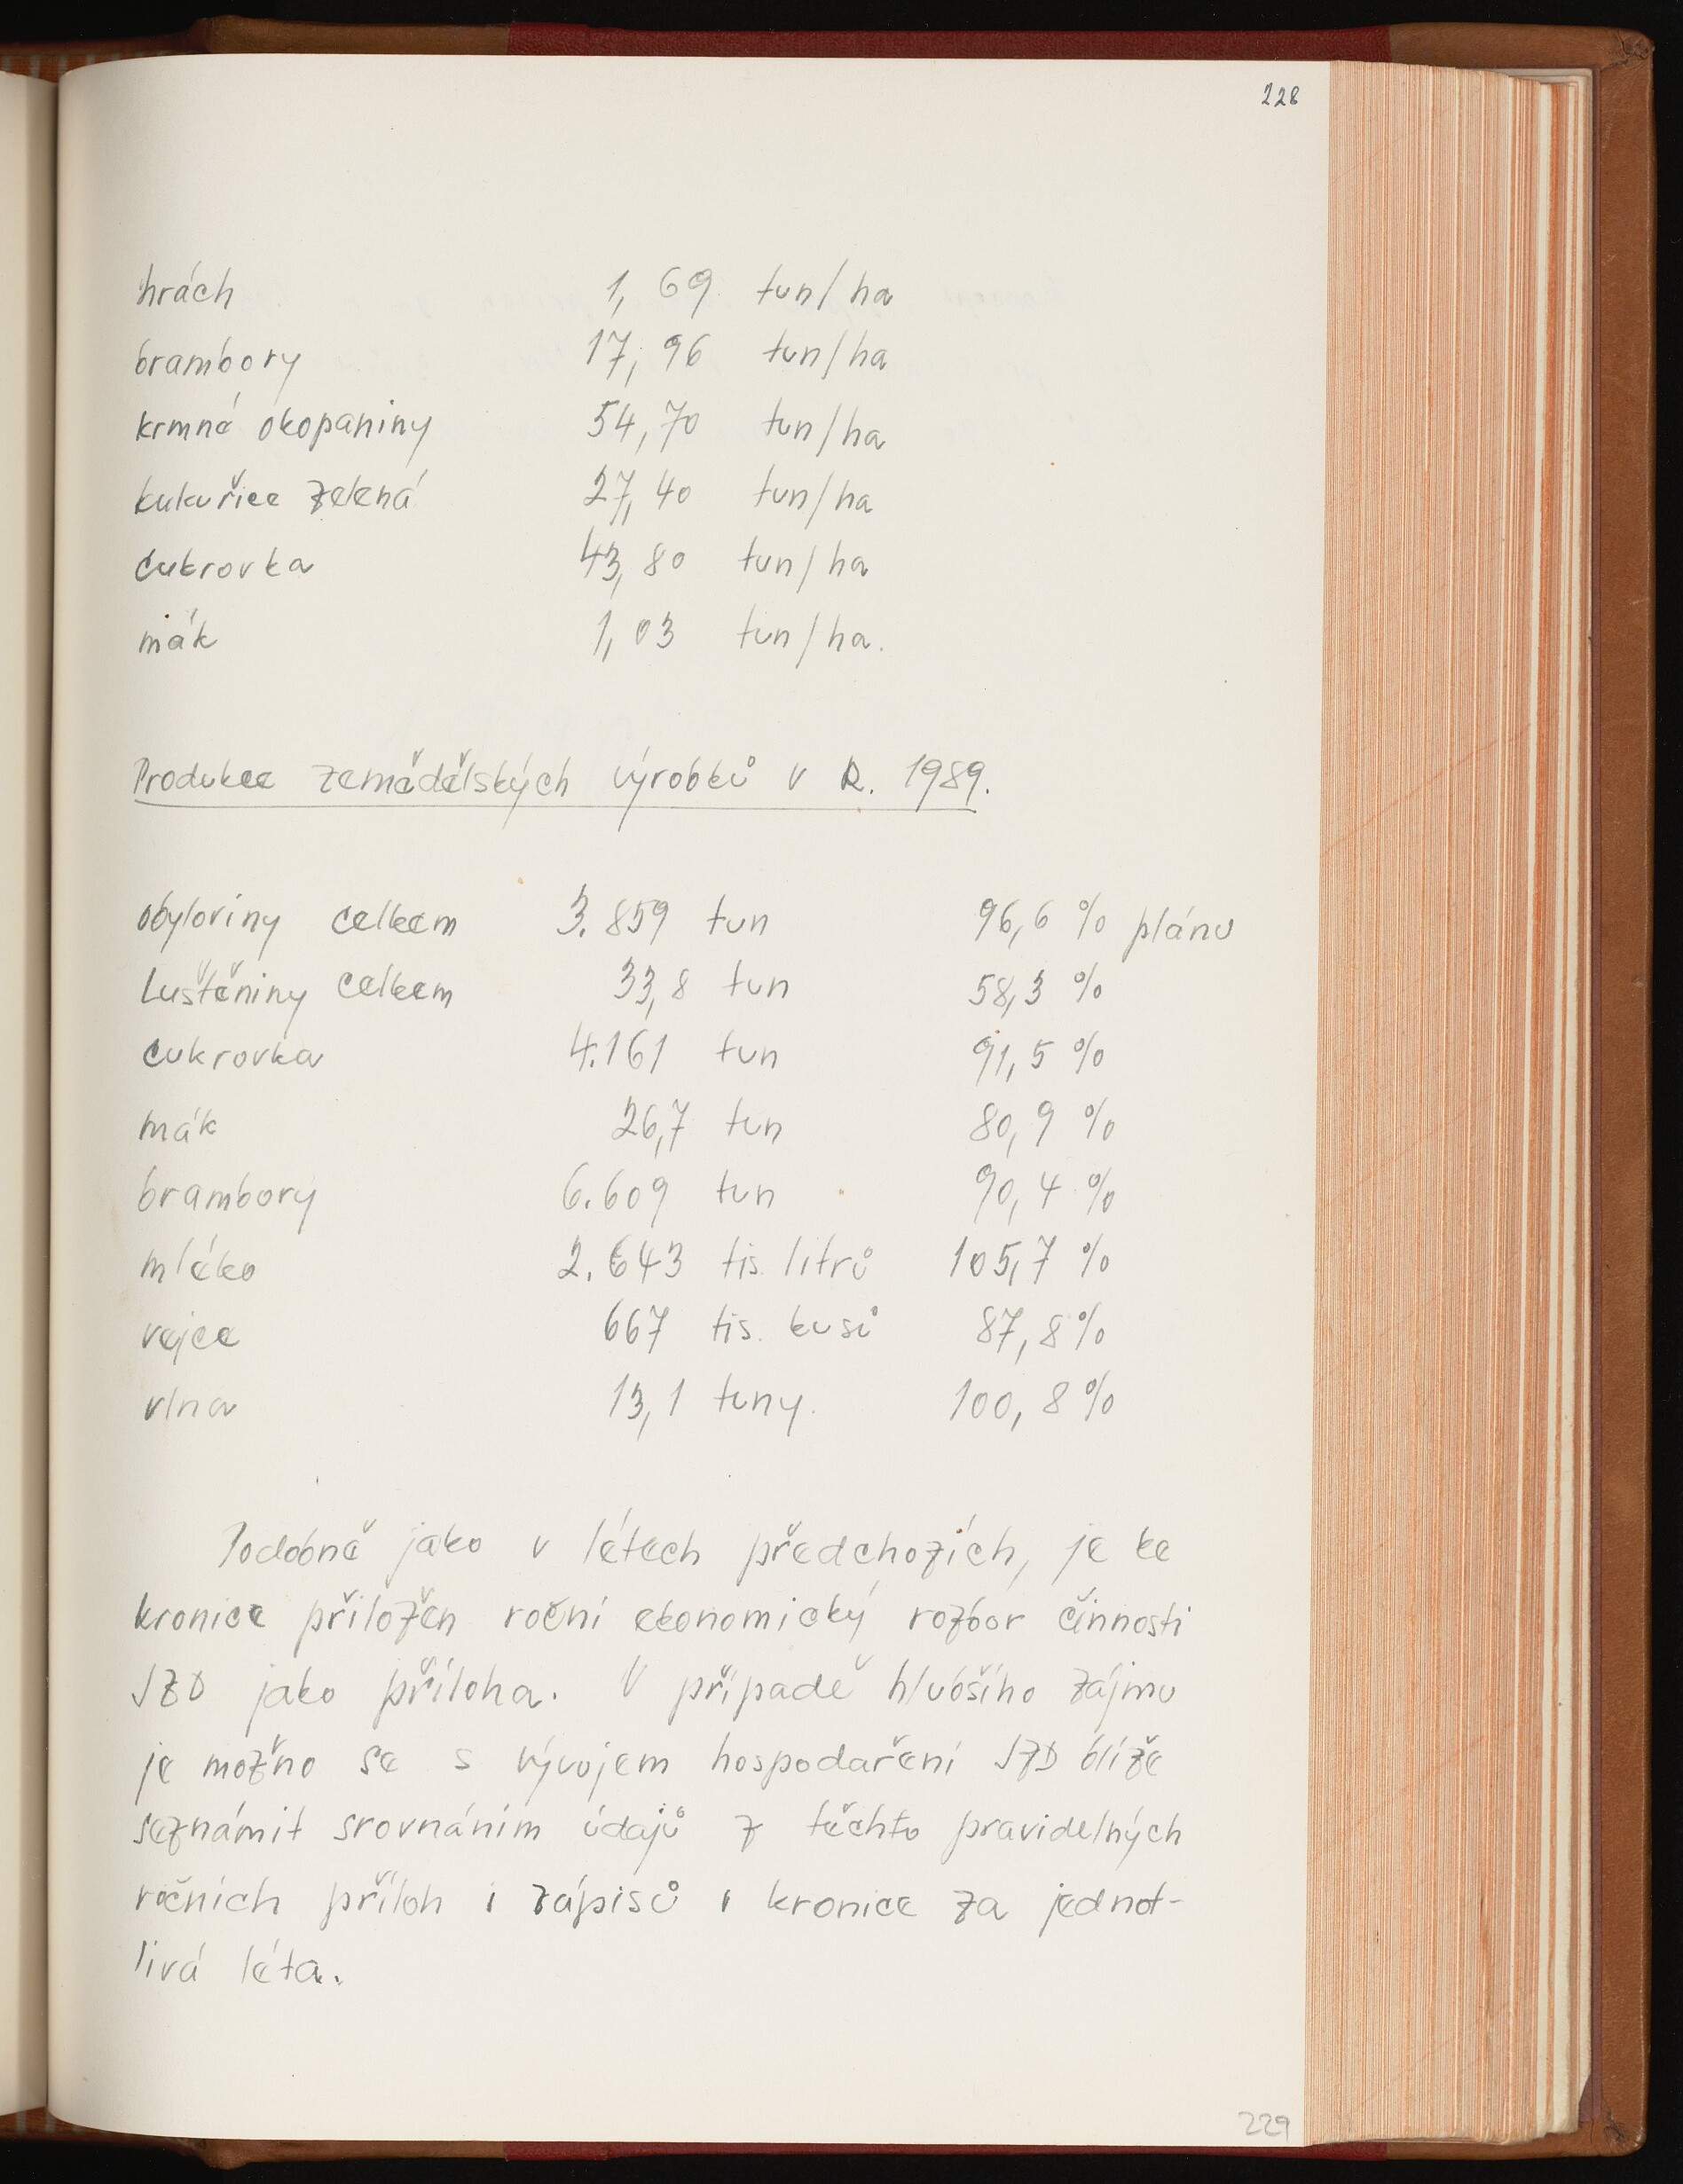 228
hrách 1,69 tun/ha
brambory 17,96 tun/ha
krmné okopaniny 54,70 tun/ha
kukuřice zelená 27,40 tun/ha
cukrovka 43,80 tun/ha
mák 1,03 tun/ha.
Produkce zemědělských výrobků v R. 1989.
obyloviny celkem 3.859 tun 96,6 % plánu
Luštěniny celkem 33,8 tun 58,3 %
cukrovka 4.161 tun 91,5 %
mák 26,7 tun 80,9 %
brambory 6.609 tun 90,4 %
mléko 2.643 tis. litrů 105,7 %
vejce 667 tis. kusů 87,8 %
vlna 13,1 tuny. 100,8 %
Podobně jako v létech předchozích, je ke
kronice přiložen roční ekonomický rozbor činnosti
JZD jako příloha. V případě hlubšího zájmu
je možno se s vývojem hospodaření JZD blíže
seznámit srovnáním údajů z těchto pravidelných
ročních příloh i zápisů v kronice za jednot-
livá léta.
229